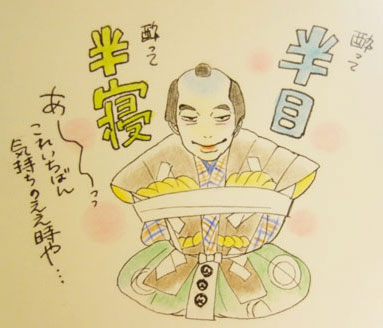 酔って
半目
酔って
半寝
あ〜〜っっ
これいちばん
気持ちのええ時や…